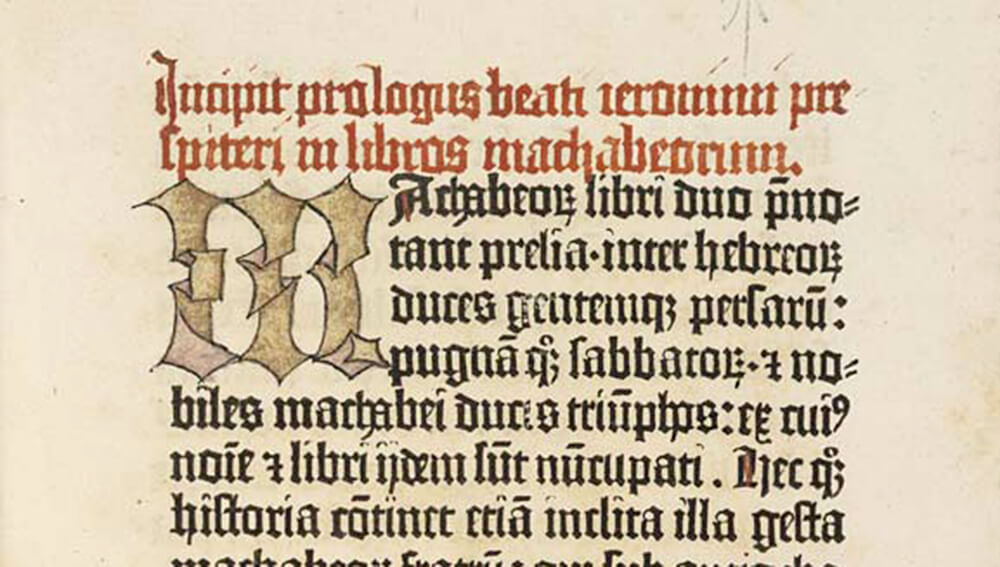 Incipit prologus beati ieronimi pre
ſpiteri in libros machabeorum.
MAchabeoꝝ libri duo p̄no⸗
tant prelia·inter hebreoꝝ
duces gentemqꝫ perſarū:
pugnā qͦꝫ ſabbatoꝝ·⁊ no⸗
biles machabei ducis triūphos:ex cuiꝰ
noīe ⁊ libri ijdem ſūt nūcupati. Hec qͦꝫ
hiſtoria cōtinet etiā inclita illa geſta
machabeoꝝ fratrū: